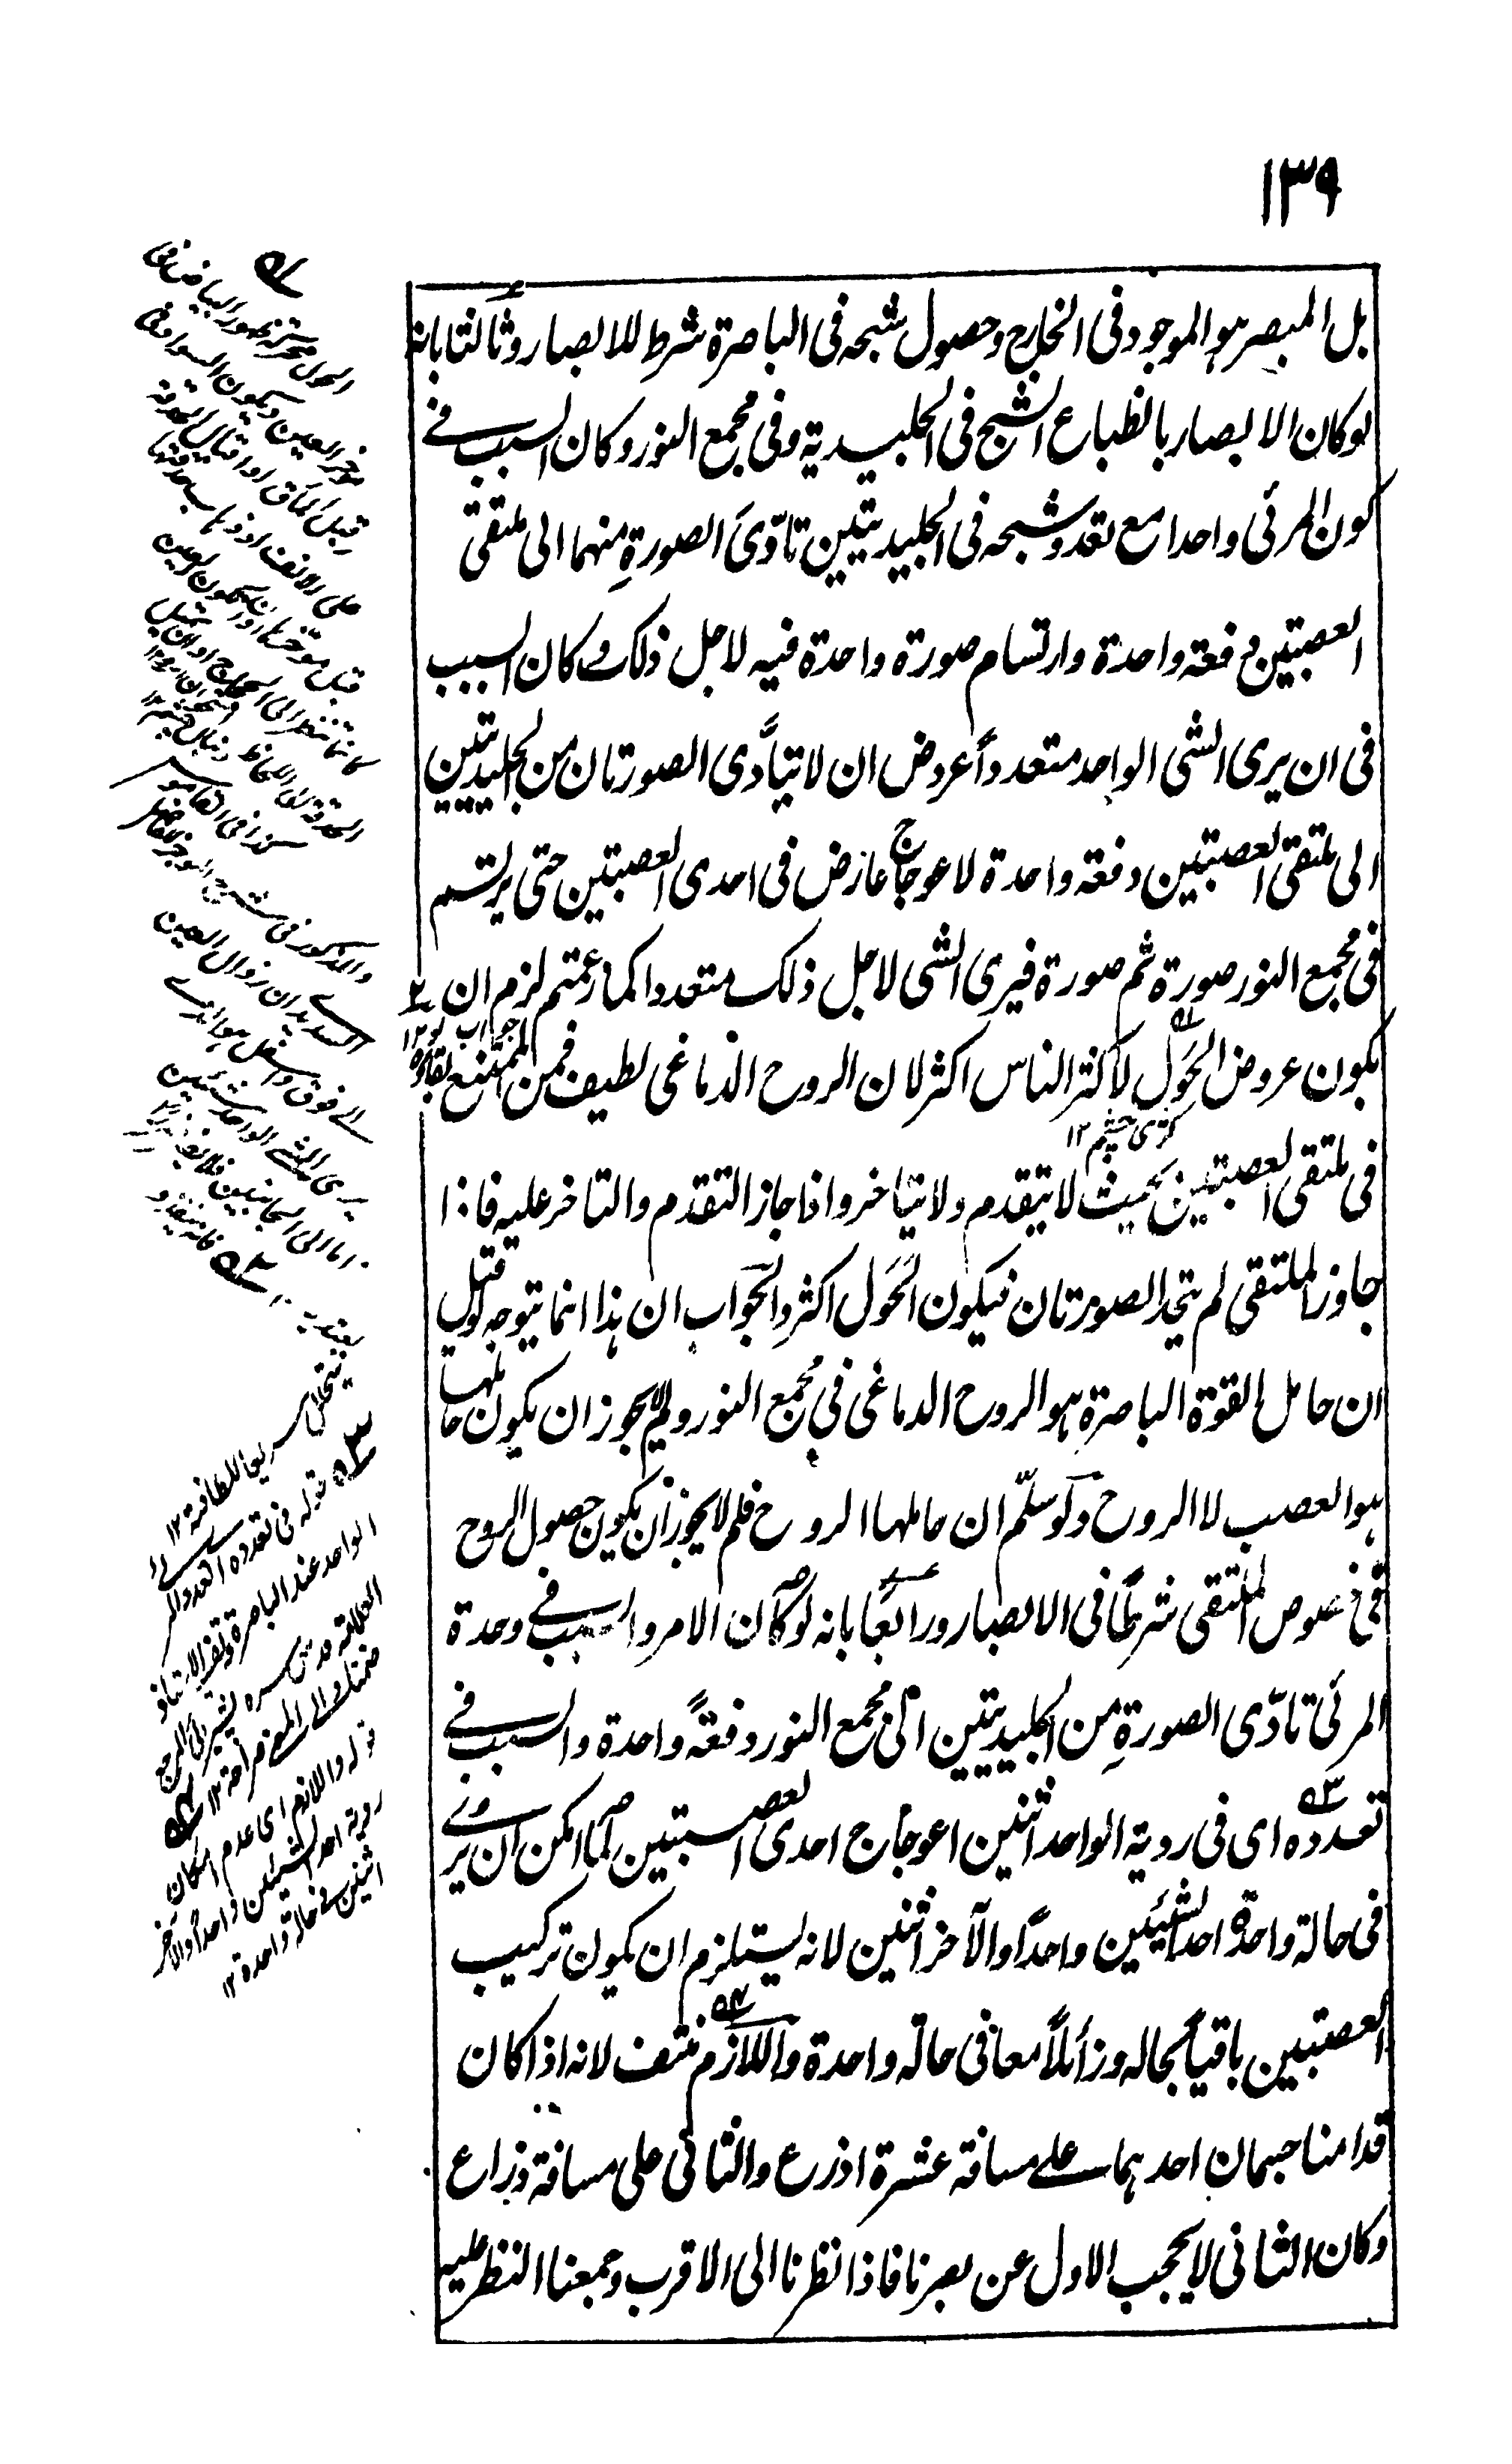 ١٣٩
بل المبصر هو الموجود فى الخارج وحصول شبحه فى الباصرة شرط للابصار وثالثا بانه
لو كان الابصار بانطباع الشبح فى الجليدية وفى مجمع النور وكان السبب فے
كون المرئى واحدا مع تعدد شبحه فى الجليديتين تادّىَ الصورةِ منهما الى ملتقى
العصبتين دفعة واحدة وارتسام صورة واحدة فيه لاجل ذلك وكان السبب
فى ان يرى الشى الواحد متعدداً عروض ان لا يتأدى الصورتان من الجليديتين
الى ملتقى العصبتين دفعة واحدة لاعوجاج عارض فى احدى العصبتين حتى يرتسم
فى مجمع النور صورة ثم صورة فيرى الشى لاجل ذلك متعددا كما زعمتم لزم ان
جواب لو ١٢
يكون عروض الحَوَل لاكثر الناس اكثر لان الروح الدماغى لطيف فمن الممتنع بقاؤه
كژى چشم ١٢
فى ملتقى العصبتين بحيث لا يتقدم ولا يتاخر واذا جاز التقدم والتاخر عليه فاذا
جاوز الملتقى لم يتحد الصورتان فيكون الحَوَل اكثر والجواب ان هذا انما يتوجه لو قيل
ان حامل القوة الباصرة هو الروح الدماغى فى مجمع النور ولم لا يجوز ان يكون حاملها
هو العصب لا الروح ولو سلّم ان حاملها الروح فلم لا يجوز ان يكون حصول الروح
فى خصوص الملتقى شرطا فى الابصار ورابعا بانه لو كان الامر والسبب فے وحدة
المرئى تادّى الصورةِ من الجليديتين الى مجمع النور دفعةً واحدة والسبب فے
تعدده اى فى روية الواحد اثنين اعوجاج احدى العصبتين لما امكن ان يرى
فى حالة واحدة احد الشيئين واحداً والآخر اثنين لانه يستلزم ان يكون تركيب
العصبتين باقياً بحاله وزائلاً معا فى حالة واحدة واللازم منتف لانه اذا كان
قدامنا جسمان احدهما على مسافة عشرة اذرع والثانى على مسافة ذراع
وكان الثانى لا يحجب الاول عن بصرنا فاذا نظرنا الى الاقرب وجمعنا النظر عليه
الحول محركة ظهور البياض فى
مؤخر العين ويكون السواد فى
قبل الماق او اقبال الحدقة
على الانف او ذهاب حدقتها
قبل مؤخرها او ان يكون العين
كانما تنظر الى الحجاج او ان تميل
الحدقة الى اللحاظ
كذا فى القاموس
والمذكور فى شرح الموجز
السديدى ان زوال العين
الى فوق واسفل هو الذى
يرى الشى الواحد شيئين
اما الى الجانبين فلا
يتحلل سريعا للطافته ١٢
قوله فى تعدده
الواحد عند الباصرة
العلامة قدس سره
قوله واللازم اى عدم امكان
روية احد الشيئين واحداً والآخر
اثنين فى حالة واحدة ١٢